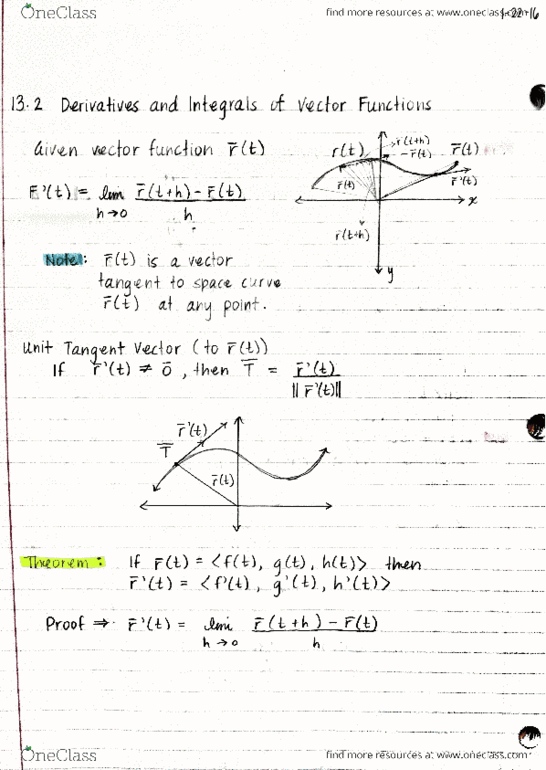 OneClass
find more resources at www.oneclass.com
1-22-16
13.2 Derivatives and Integrals of Vector Functions
Given vector function r̄(t)
r̄'(t) = lim r̄(t+h) - r̄(t)
h→0 h
r(t)
r(t+h)
- r̄(t)
r̄(t)
r̄'(t)
r̄(t)
x
r̄(t+h)
y
Note: r̄(t) is a vector
tangent to space curve
r̄(t) at any point.
Unit Tangent Vector (to r̄(t))
If r̄'(t) ≠ 0̄, then T̄ = r̄'(t)
||r̄'(t)||
r̄'(t)
T̄
r̄(t)
Theorem: If r̄(t) = <f(t), g(t), h(t)> then
r̄'(t) = <f'(t), g'(t), h'(t)>
Proof ⇒ r̄'(t) = lim r̄(t+h) - r̄(t)
h→0 h
OneClass
find more resources at www.oneclass.com